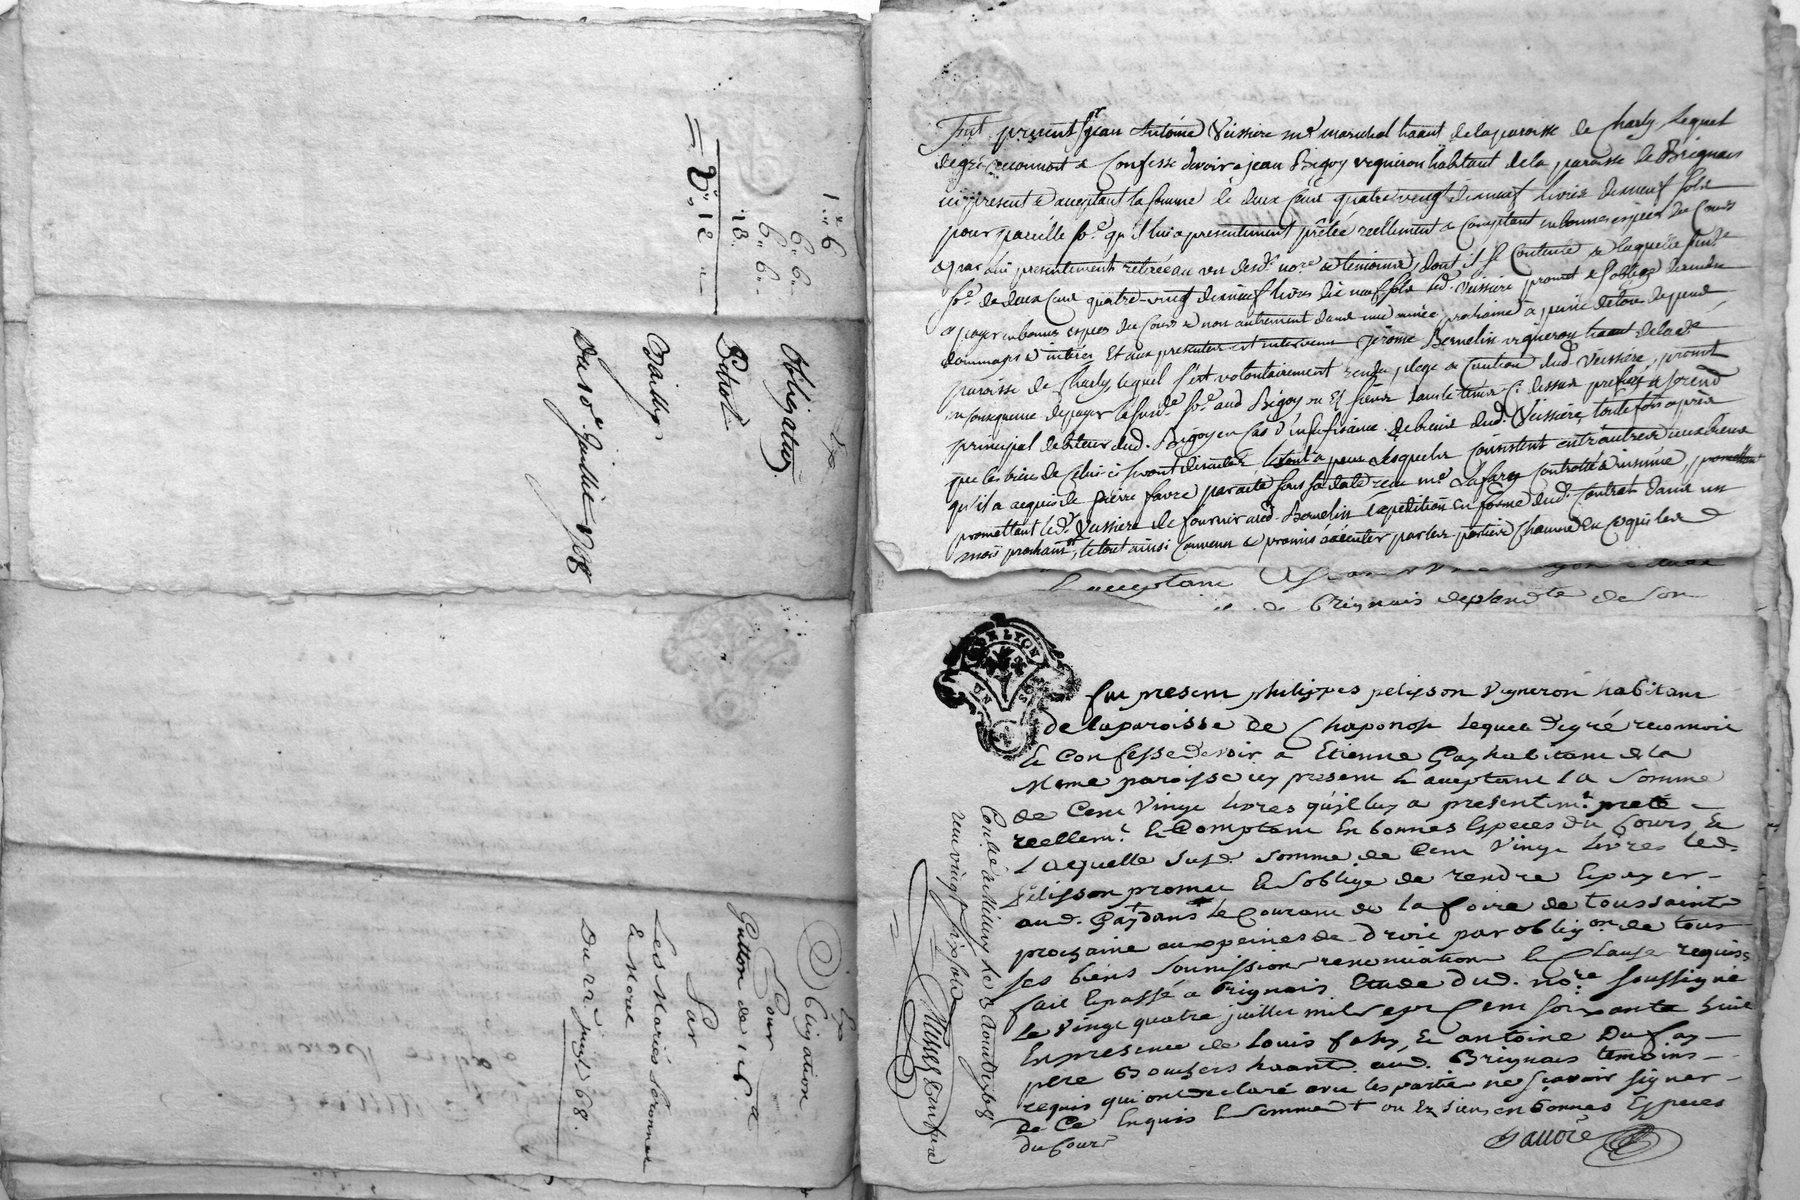 1 " 6
6 " 6
6 " 6
18
Obligation
Du 10e Juillet 1768
Exp
Obligation
Pour
Par
Les Mariés
Et Morel
Du 22 juillet 68
Fut présent Sr jean Antoine Veissiere me marechal haant de la paroisse de Charly lequel
de gré reconnoit & Confesse devoir a jean Bigoy vigneron habitant de la paroisse de Brignais
icy present & acceptant la somme de deux Cent quatre vingt dixneuf livres dixneuf sols
pour pareille so.e qu'il lui a presentement prêtée reellement & Comptant en bonnes especes du Cours
& par lui presentement retirée au vu desd. nore & temoins, dont il se Contente de laquelle susde
so.e de deux Cent quatre-vingt dixneuf livres dix neuf sols led. Veissiere promet & s'oblige de rendre
& payer en bonnes especes du Cours & non autrement dans une année prochaine à peine de tous depens
dommages & interets Et aux presentes est intervenu Jérome Bernelin vigneron haant de lad.e
paroisse de Charly, lequel s'est volontairement rendu plege & Caution dud. Veissiere, promet
en Consequence de payer la susde so.e aud Bigoy ou Es siens dans le terme Ci dessus prefix, & se rend
principal debiteur dud. Bigoy en Cas d'insufisance de biens dud. Veissiere, toutefois après
que les biens de Celui ci seront discutés lesquels Consistent entr'autres aux biens
qu'il a acquis de pierre favre par acte sous sa date reçu me Controllé & insinué,
promettant led. Sr Veissiere de fournir aud. Bernelin Expedition en forme dud. Contrat dans un
mois prochain, le tout ainsi Convenu & promis executer par les parties Chacune En Ce qui les
acceptant
de Brignais
GEN LYON
fut presen philippes pelisson vigneron habitant
de la paroisse de Chaponost lequel de gré reconnoit
Et Confesse devoir a Etienne Gay habitant de la
Meme paroisse icy present Et acceptant la somme
de Cent Vingt livres qu'il luy a presentemt. preté
reellemt. Et Comptant En bonnes Especes du Cours Et
laquelle susd. somme de Cent Vingt livres led.
Pelisson promet Et s'oblige de rendre Et payer
aud. Gay + dans le Courant de la foire de toussaint
prochaine aux peines de droit par obligon de tous
ses biens soumission renonciation Et Clause requise
fait Et passé a Brignais Etude dud. nore. soussigné
le Vingt quatre juillet mil sept Cent soixante huit
En presence de Louis fahy, & antoine Dufay
pere Bouchers haant. aud. Brignais temoins
requis qui ont declaré avec les partie ne scavoir signer
de Ce Enquis Et Sommé + ou Es siens en bonnes Especes
du Cours
Conllé a Millery le 3 Aoust 1768
reçu vingt six sols